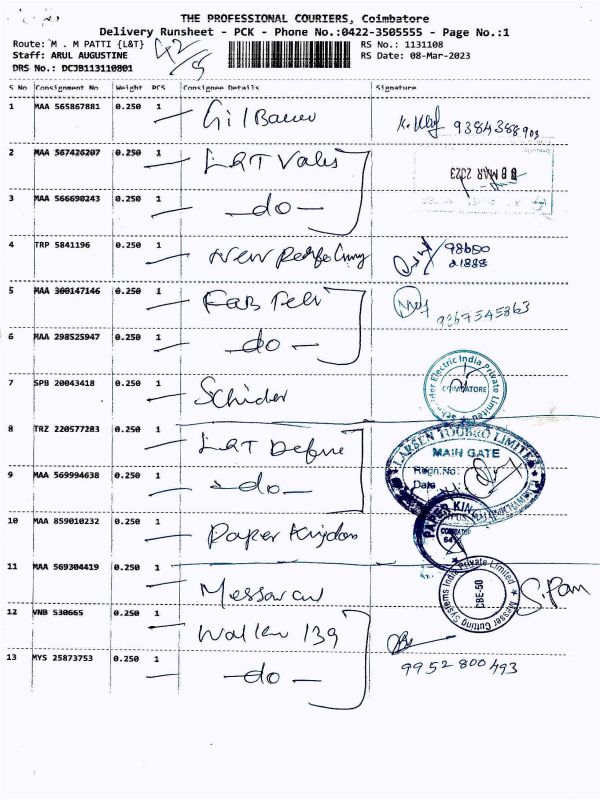 THE PROFESSIONAL COURIERS, Coimbatore
Delivery Runsheet - PCK - Phone No.:0422-3505555 - Page No.:1
Route: M . M PATTI {L&T}
RS No.: 1131108
Staff: ARUL AUGUSTINE
RS Date: 08-Mar-2023
DRS No.: DCJB113110801
S No Consignment No Weight PCS Consignee Details Signature
1 MAA 565867881 0.250 1
9384388903
2 MAA 567426207 0.250 1 L&T Valves
08 MAR 2023
3 MAA 566690243 0.250 1 -do-
4 TRP 5841196 0.250 1 New
98650
21888
5 MAA 300147146 0.250 1
9867545863
6 MAA 298525947 0.250 1 -do-
7 SPB 20043418 0.250 1 Schider
Electric India Private Limited
COIMBATORE
8 TRZ 220577283 0.250 1 L&T Defence
LARSEN TOUBRO LIMITED
MAIN GATE
Regn.No:
Date
9 MAA 569994638 0.250 1 -do-
10 MAA 859010232 0.250 1 Paper Kingdom
PAPER KING
11 MAA 569304419 0.250 1
Messer Cutting Systems India Private Limited
CBE-50
12 VNB 530665 0.250 1 Walker 139
13 MYS 25873753 0.250 1 -do-
9952800493